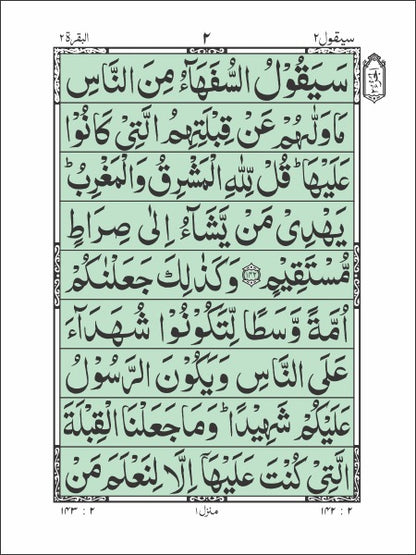 سيقول ٢
٢
البقرة ٢
سَيَقُوْلُ السُّفَهَآءُ مِنَ النَّاسِ
مَا وَلّٰىهُمْ عَنْ قِبْلَتِهِمُ الَّتِيْ كَانُوْا
عَلَيْهَا ؕ قُلْ لِّلّٰهِ الْمَشْرِقُ وَالْمَغْرِبُ ؕ
يَهْدِيْ مَنْ يَّشَآءُ اِلٰى صِرَاطٍ
مُّسْتَقِيْمٍ ﴿١٤٢﴾ وَكَذٰلِكَ جَعَلْنٰكُمْ
اُمَّةً وَّسَطًا لِّتَكُوْنُوْا شُهَدَآءَ
عَلَى النَّاسِ وَيَكُوْنَ الرَّسُوْلُ
عَلَيْكُمْ شَهِيْدًا ؕ وَمَا جَعَلْنَا الْقِبْلَةَ
الَّتِيْ كُنْتَ عَلَيْهَآ اِلَّا لِنَعْلَمَ مَنْ
٢ : ١٤٢
منزل ١
٢ : ١٤٣